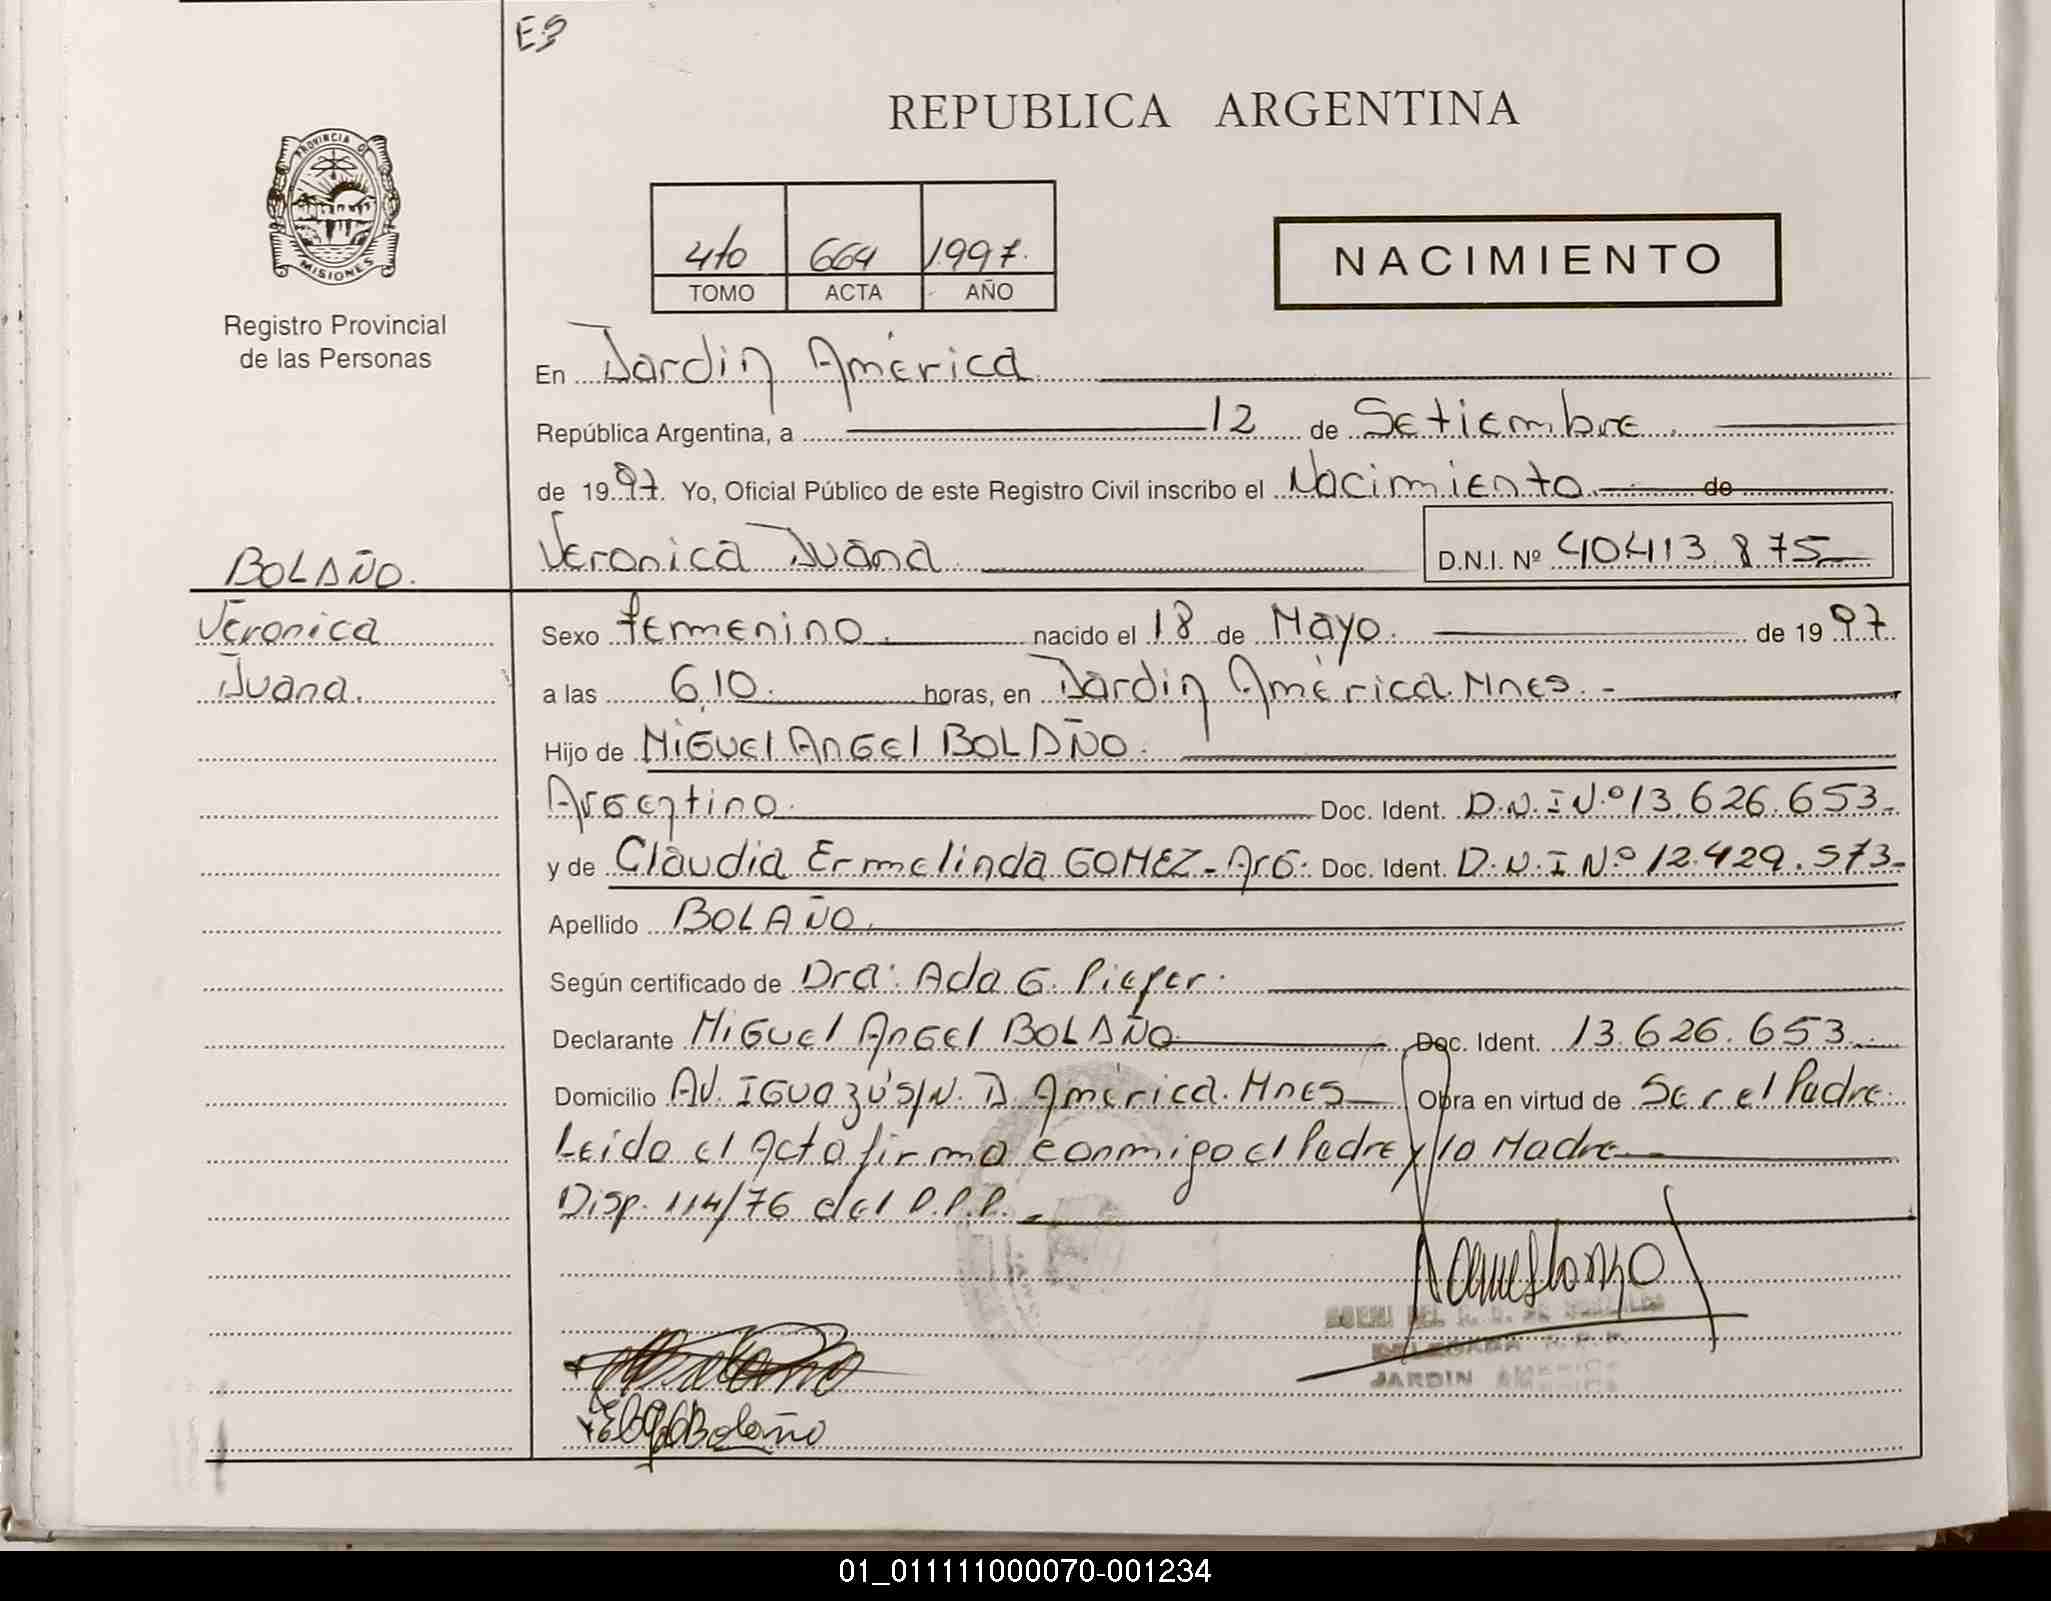 E3
REPUBLICA ARGENTINA
PROVINCIA DE
MISIONES
Registro Provincial
de las Personas
4to 664 1.997.
TOMO ACTA AÑO
NACIMIENTO
En Jardin América
República Argentina, a 12 de Setiembre
de 1997. Yo, Oficial Público de este Registro Civil inscribo el Nacimiento de
BOLAÑO.
Veronica Juana D.N.I. Nº 40413.875
Veronica
Juana.
Sexo femenino. nacido el 18 de Mayo. de 1997
a las 6,10. horas, en Jardin América. Mnes. -
Hijo de MiGUEl ANGEl BOLAÑO.
Argentino. Doc. Ident. D.N.I N.º 13.626.653.-
y de Claudia Ermelinda GOMEZ - Arg. Doc. Ident. D.N.I N.º 12.429.573-
Apellido BOLAÑO.
Según certificado de Dra: Ada G.
Declarante MiGUEl ANGEl BOLAÑO Doc. Ident. 13.626.653.
Domicilio AV. IGUAZÚ S/N. J. América. Mnes Obra en virtud de Ser el Padre.
Leido el Acta firma conmigo el Padre y la Madre
Disp. 114/76 del
DELEGADA R.P.P.
JARDIN AMERICA
Bolaño
01_011111000070-001234